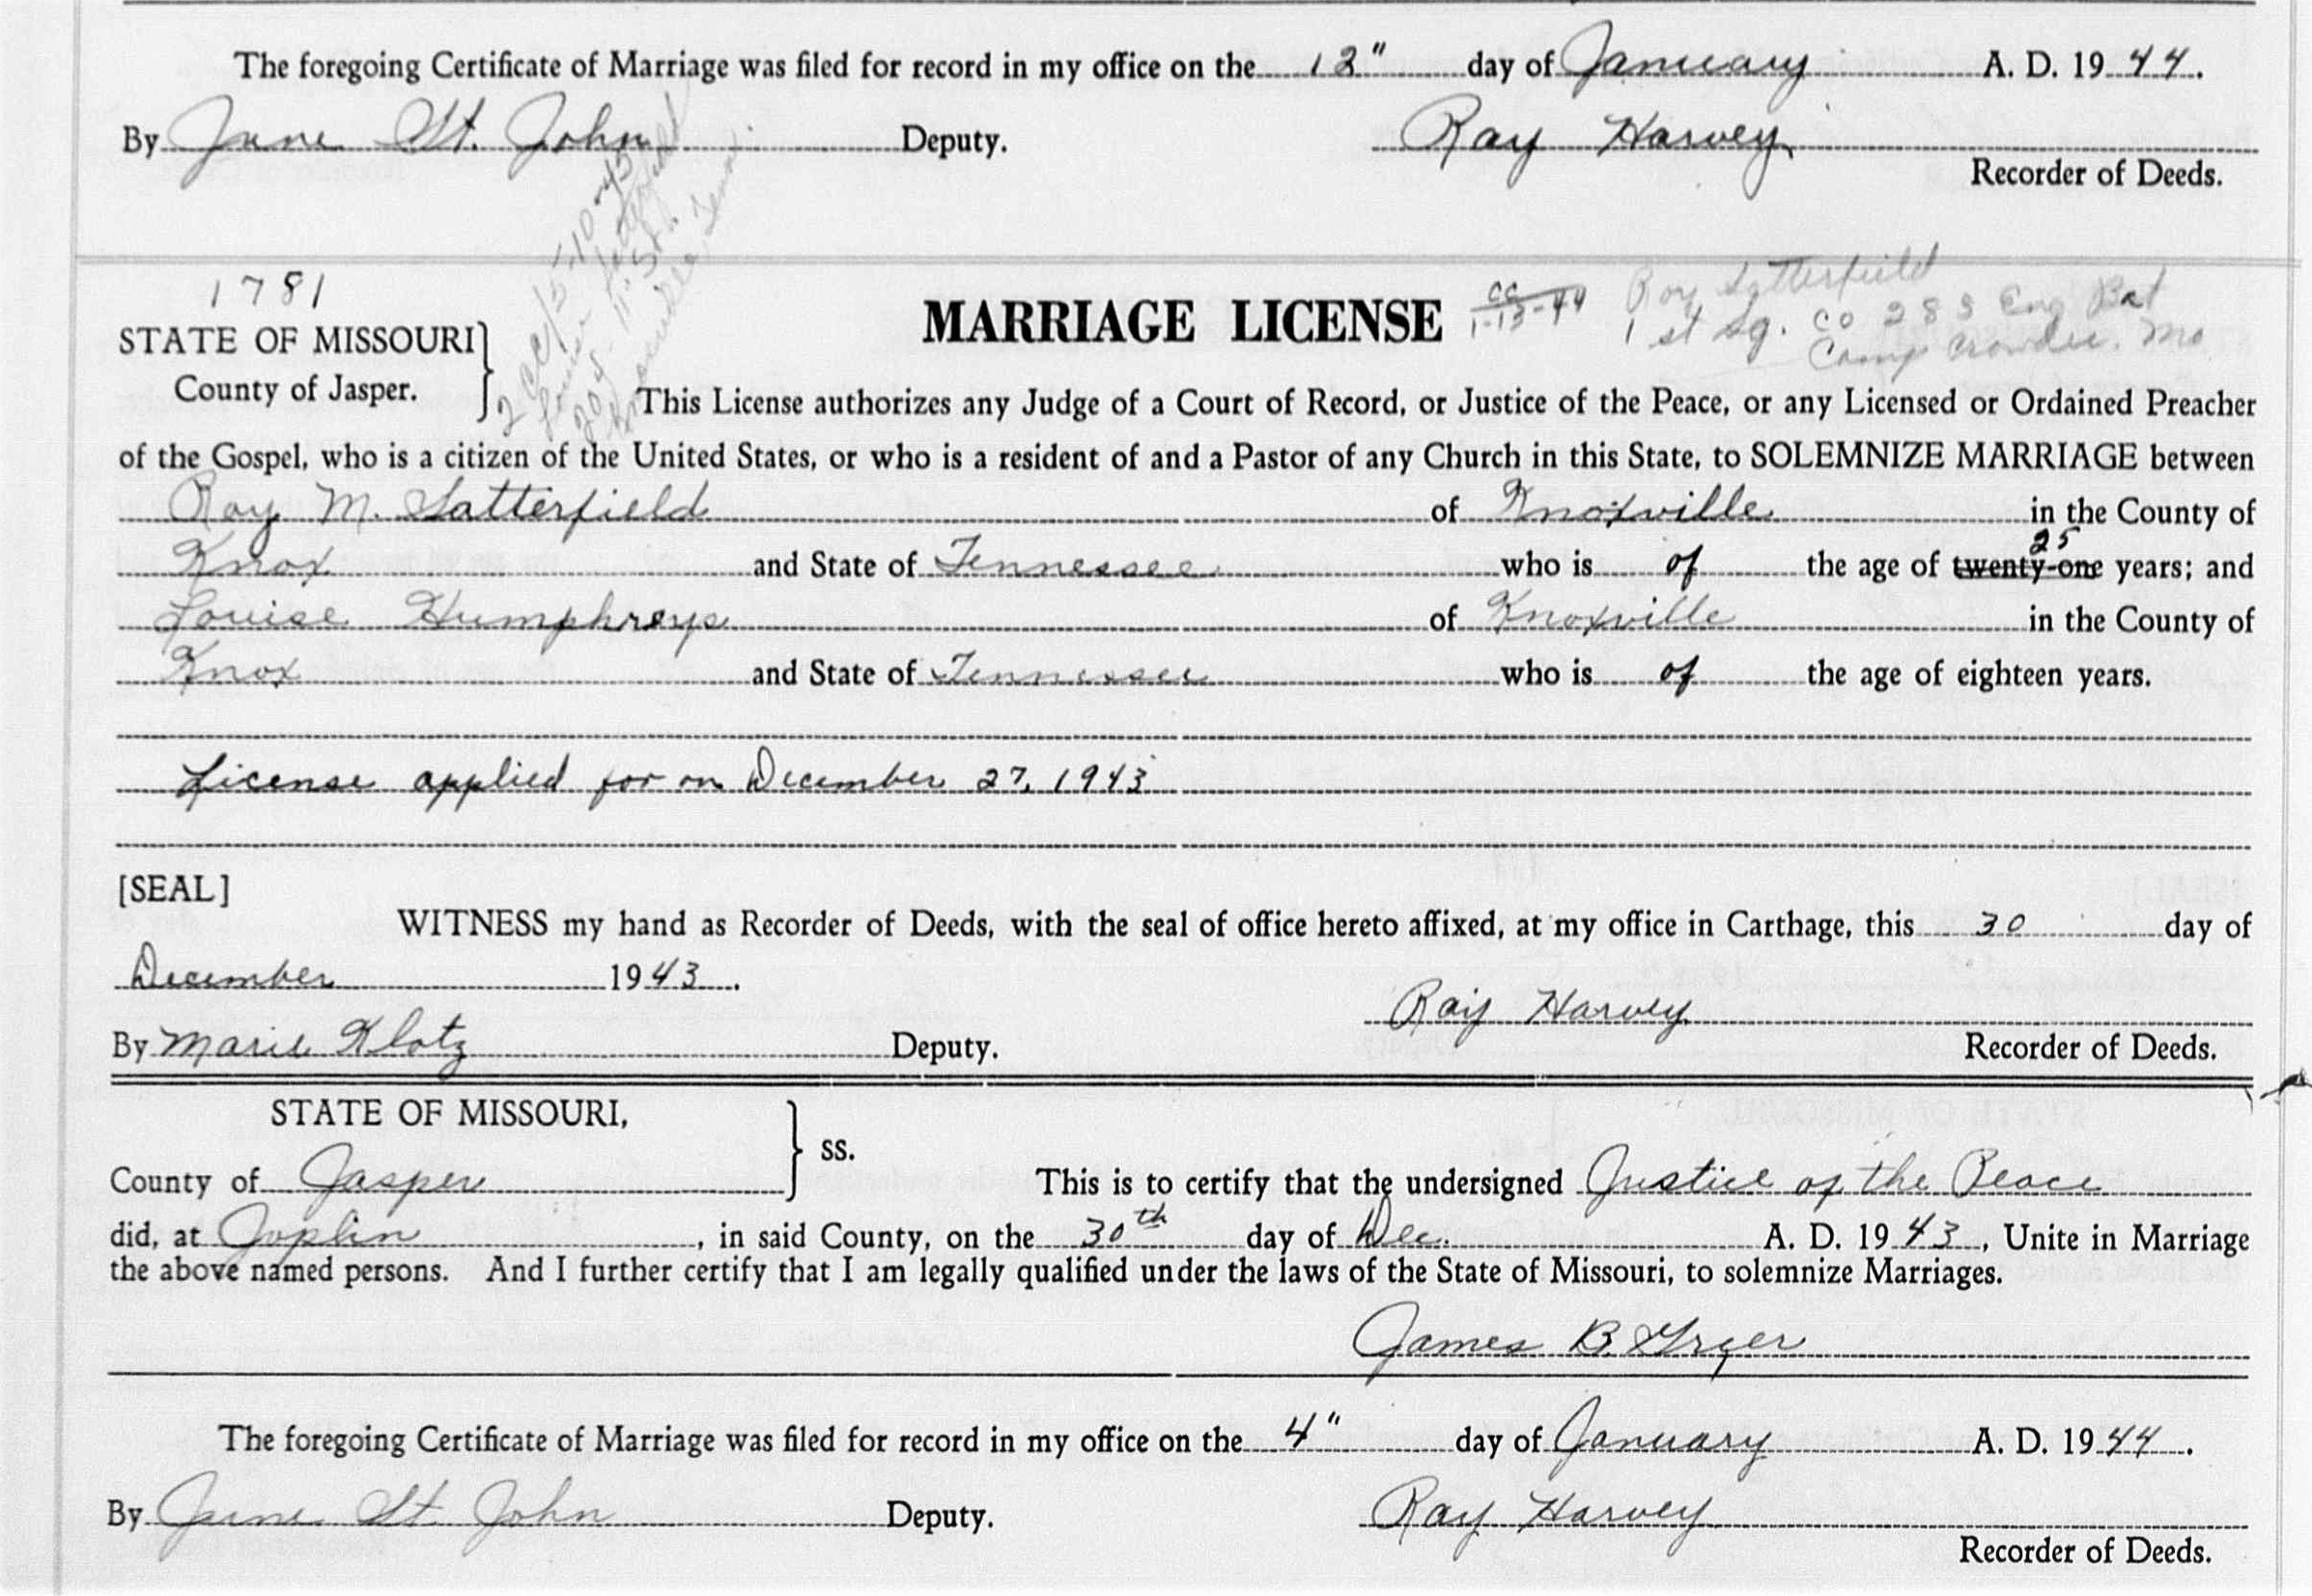 The foregoing Certificate of Marriage was filed for record in my office on the 12" day of January A. D. 19 44.
By June St. John Deputy. Ray Harvey
Recorder of Deeds.
1781
MARRIAGE LICENSE
cc
1-13-44
Roy Satterfield
1st Sg. Co 283 Eng Bat
Camp Crowder. Mo
2 CC/5-10-45
Louise Satterfield
STATE OF MISSOURI
County of Jasper.
This License authorizes any Judge of a Court of Record, or Justice of the Peace, or any Licensed or Ordained Preacher
of the Gospel, who is a citizen of the United States, or who is a resident of and a Pastor of any Church in this State, to SOLEMNIZE MARRIAGE between
Roy M. Satterfield of Knoxville in the County of
Knox and State of Tennessee who is of the age of twenty-one 25 years; and
Louise Humphreys of Knoxville in the County of
Knox and State of Tennessee who is of the age of eighteen years.
License applied for on December 27, 1943
[SEAL]
WITNESS my hand as Recorder of Deeds, with the seal of office hereto affixed, at my office in Carthage, this 30 day of
December 1943.
Ray Harvey
By Marie Klotz Deputy. Recorder of Deeds.
STATE OF MISSOURI,
ss.
County of Jasper This is to certify that the undersigned Justice of the Peace
did, at Joplin, in said County, on the 30th day of Dec. A. D. 19 43, Unite in Marriage
the above named persons. And I further certify that I am legally qualified under the laws of the State of Missouri, to solemnize Marriages.
James B. Greer
The foregoing Certificate of Marriage was filed for record in my office on the 4" day of January A. D. 19 44.
By June St. John Deputy. Ray Harvey
Recorder of Deeds.